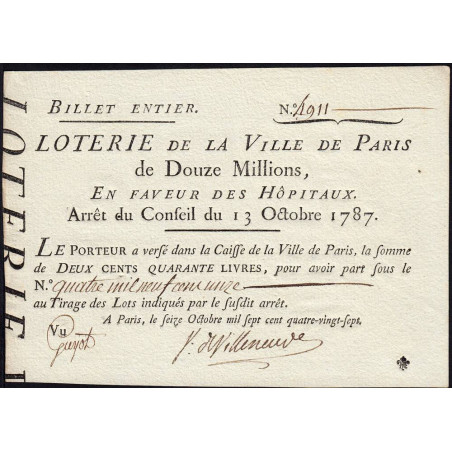 LOTERIE
BILLET ENTIER. N.º 4911
LOTERIE DE LA VILLE DE PARIS
de Douze Millions,
EN FAVEUR DES HÔPITAUX.
Arrêt du Conſeil du 13 Octobre 1787.
LE PORTEUR a verſé dans la Caiſſe de la Ville de Paris, la ſomme
de DEUX CENTS QUARANTE LIVRES, pour avoir part ſous le
N.º quatre mil neuf cent unze
au Tirage des Lots indiqués par le ſuſdit arrêt.
A Paris, le ſeize Octobre mil ſept cent quatre-vingt-ſept.
Vu
Guyot
de Villeneuve